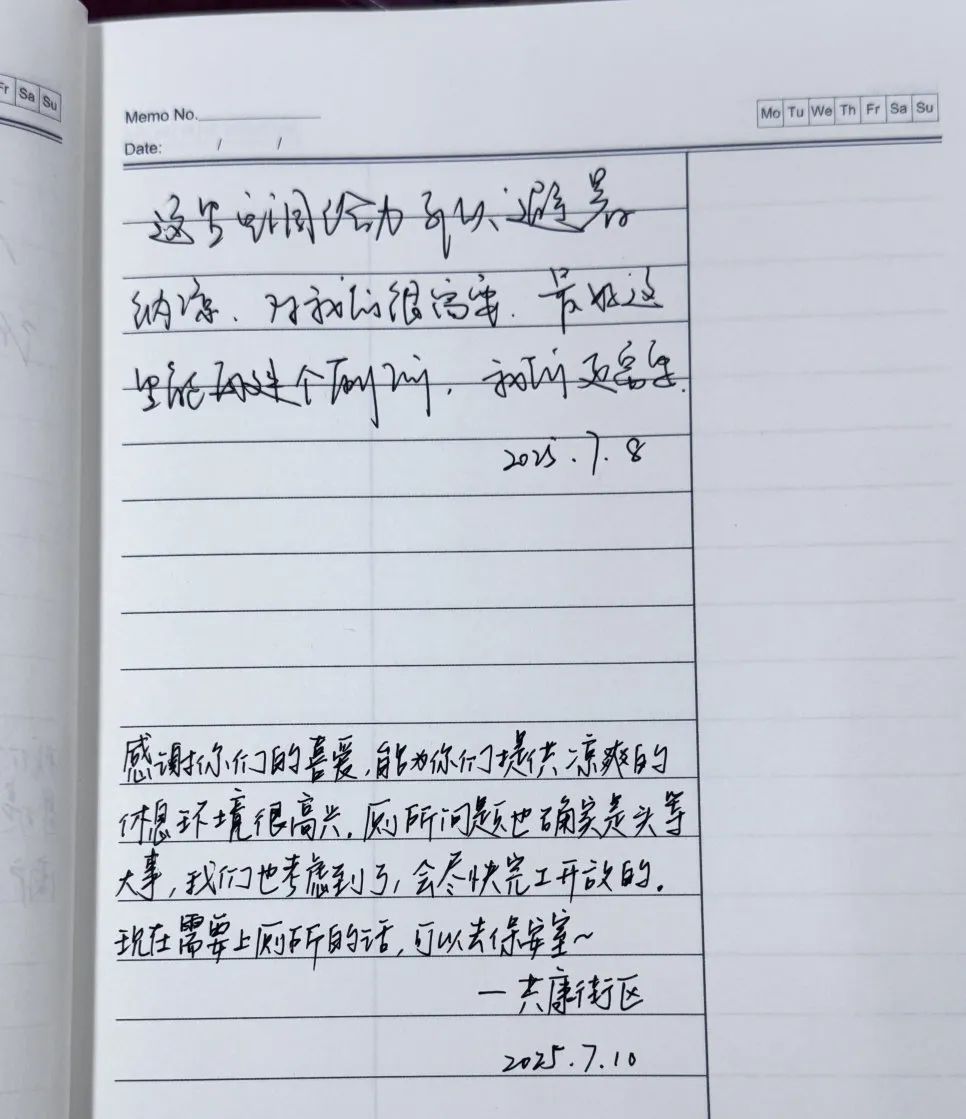 Fr Sa Su
Memo No.
Mo Tu We Th Fr Sa Su
Date: / /
这里空调给力可以避暑
纳凉、对我们很高兴.最好这
里能再建个厕所,我们更高兴.
2025.7.8
感谢你们的喜爱,能为你们提供凉爽的
休息环境很高兴.厕所问题也确实是头等
大事,我们也考虑到了,会尽快完工开放的。
现在需要上厕所的话,可以去保安室~
—共康街区
2025.7.10